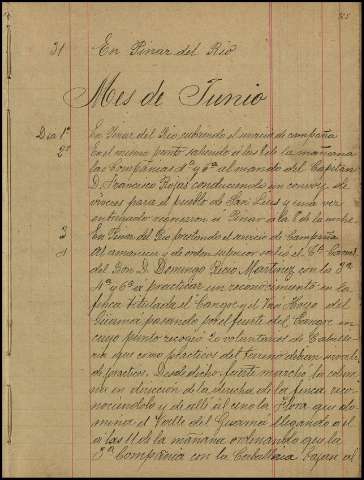 31 En Pinar del Rio
Mes de Junio
Dia 1º En Pinar del Rio cubriendo el servicio de campaña
2º En el mismo punto saliendo á las 8 de la mañana
las Compañias 4ª y 6ª al mando del Capitan
D. Francisco Rojas conduciendo un convoy de
viveres para el pueblo de San Luis y una vez
entregado regresaron á Pinar á la 6 de la noche
3 En Pinar del Rio prestando el servicio de Campaña
4 Al amanecer y de orden superior salió el Tte Coronel
del Bon D. Domingo Recio Martinez con la 3ª
4ª y 6ª á practicar un reconocimiento en la
finca titulada el Cangre y el Hoyo del
Guamá pasando por el fuerte del Cangre en
cuyo punto recogió 20 voluntarios de Caballe-
ria que como prácticos del terreno debian
de practicos. Desde dicho fuerte marchó la colum-
na en direccion de la derecha de la finca, reco-
nociendolo y de alli al Flora que do-
mina el Valle del Guamá llegando a él
á las 11 de la mañana ordenando que la
3ª Compañia con la Caballeria bajase al